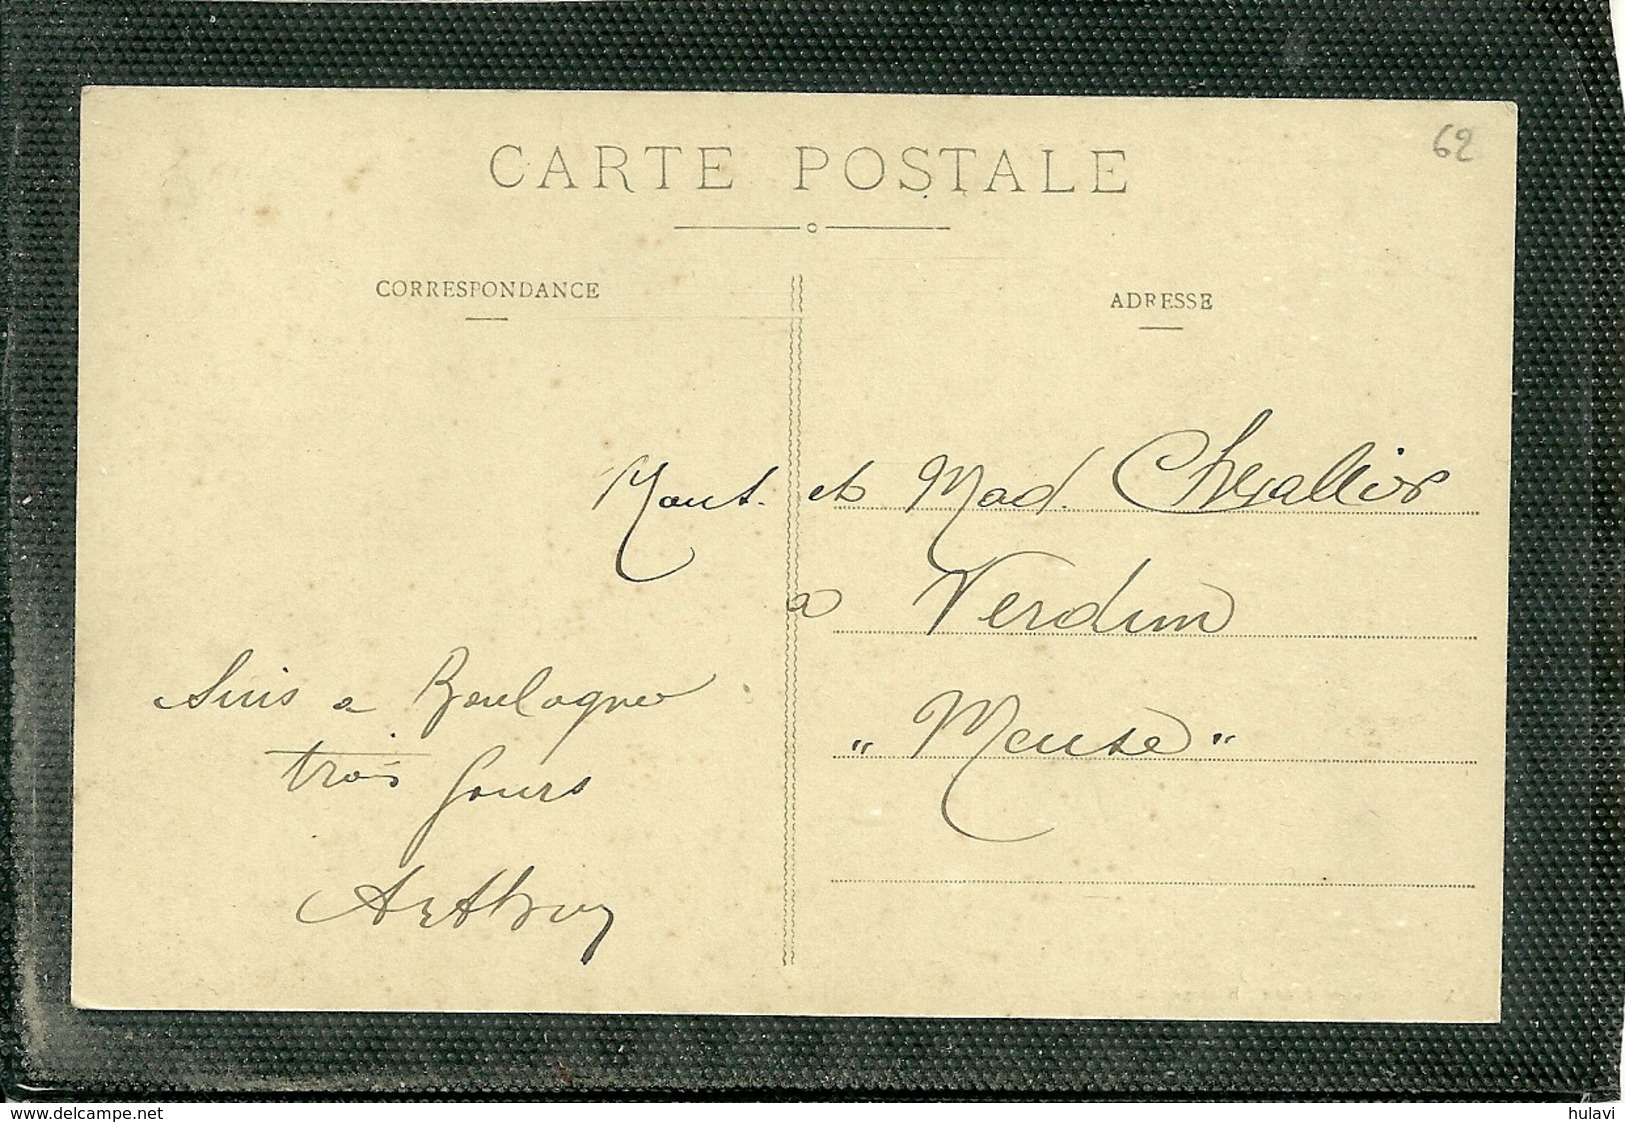 62
CARTE POSTALE
CORRESPONDANCE
ADRESSE
et Mad. Chevallier
a Verdun
"Meuse"
Suis a Boulogne
trois jours
Arthur
www.delcampe.net
hulavi